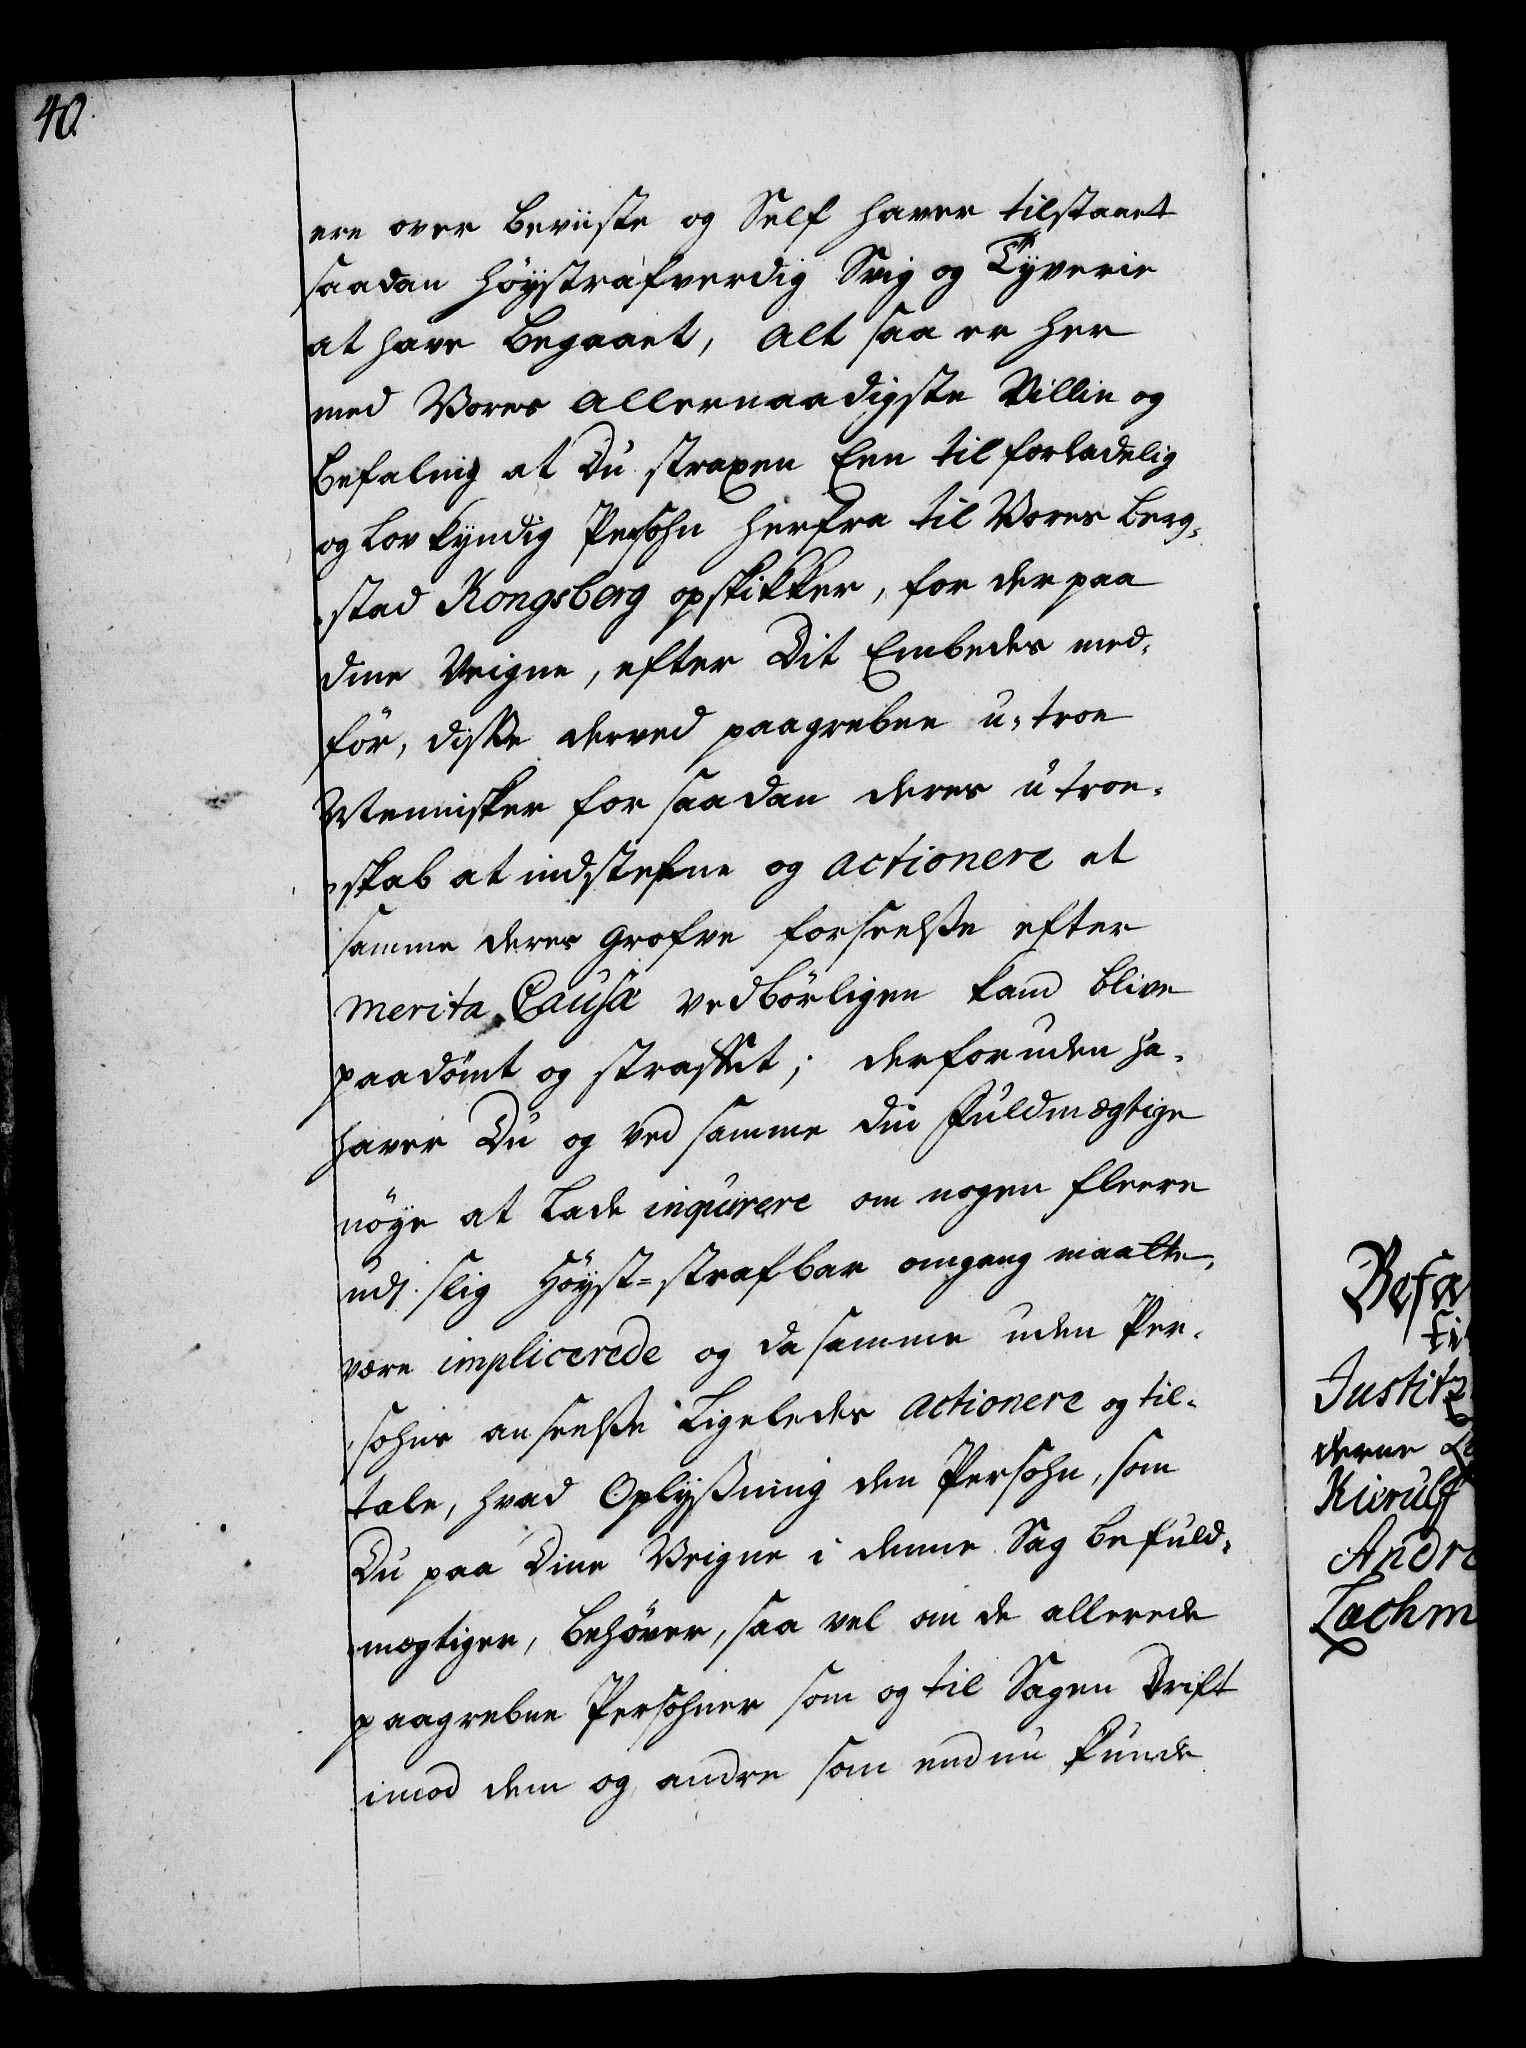 40.
ere over beviiste og Self haver tilstaaet
saadan höystrafverdig Svig og Tyverie
at have begaaet, alt saa er her
med Vores allernaadigste Villie og
befaling at Du straxen Een tilforladelig
og Lov kyndig Persohn herfra til Vores berg-
stad Kongsberg opskikker, for der paa
dine Veigne, efter Dit Embedes med-
för, disse derved paagrebne u-troe
Mennisker for saadan deres utroe-
skab at indstefne og actionere at
samme deres grofve forseelße efter
merita Causæ vedbörligen kand blive
paadömt og straffet; derforuden ha-
haver Du og ved samme din Fuldmægtige
nöye at Lade inqvirere om nogen fleere
udj slig Höyst-strafbar omgang maatte
være implicerede og da samme uden Per-
sohns anseelße Ligeledes actionere og til-
tale, hvad Oplyßning den Persohn, som
Du paa Dine Veigne i denne Sag befuld-
mægtiger, behöver, saa vel om de allerede
paagrebne Persohner som og til Sagen Drift
imod dem og andre som endnu kunde
Befa
til
Justitz
derne
Kierulf
Andre
Lachm